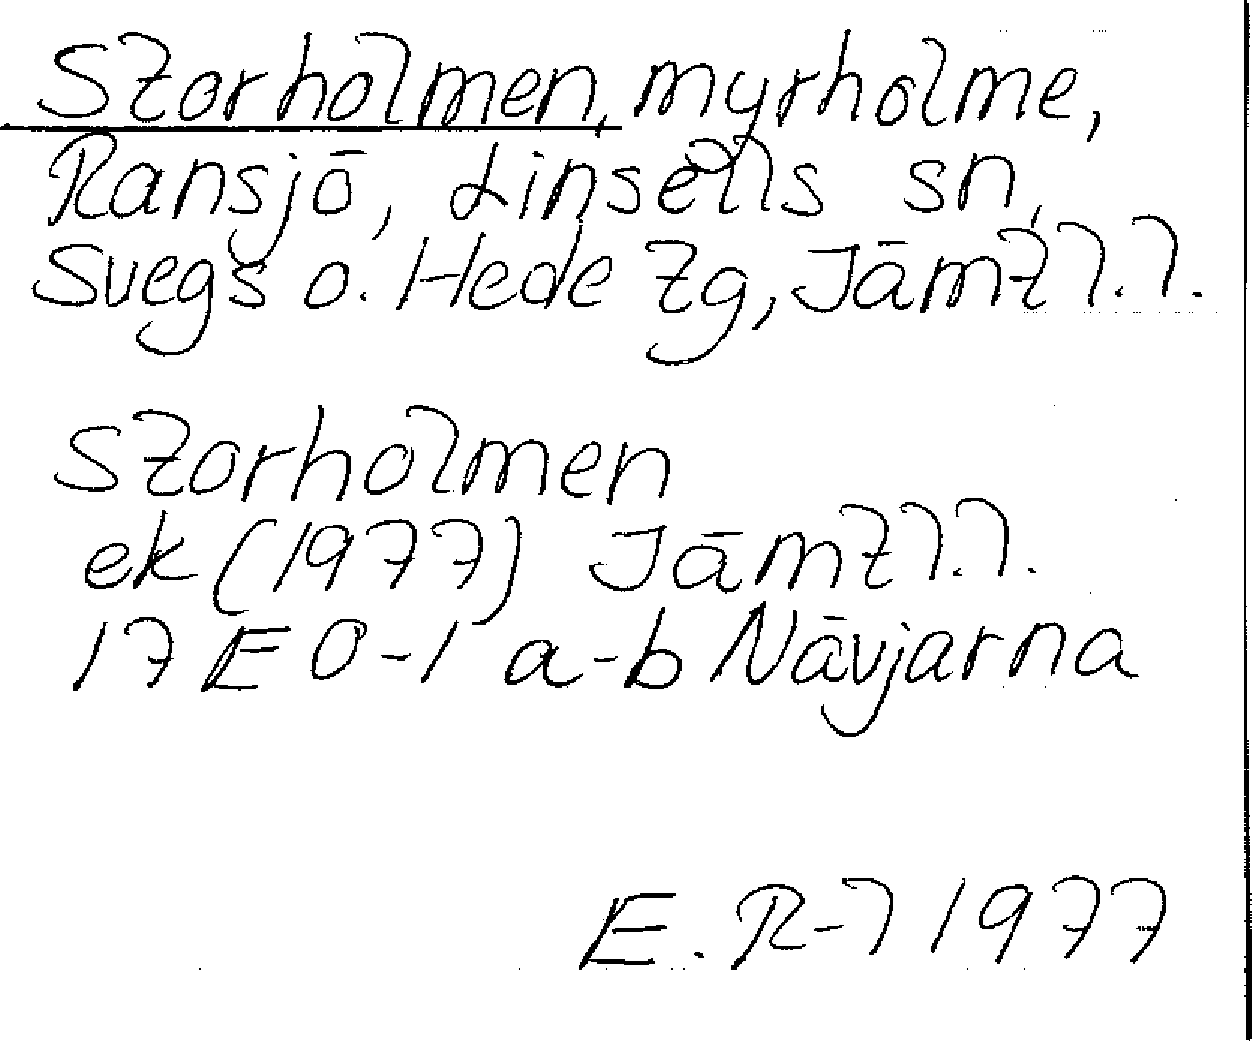 Storholmen, myrholme,
Ransjö, Linsells sn,
Svegs o. Hede tg, Jämtl.l.
Storholmen
ek (1977) Jämtl.l.
17 E 0-1 a-b Nävjarna
E. R-l 1977